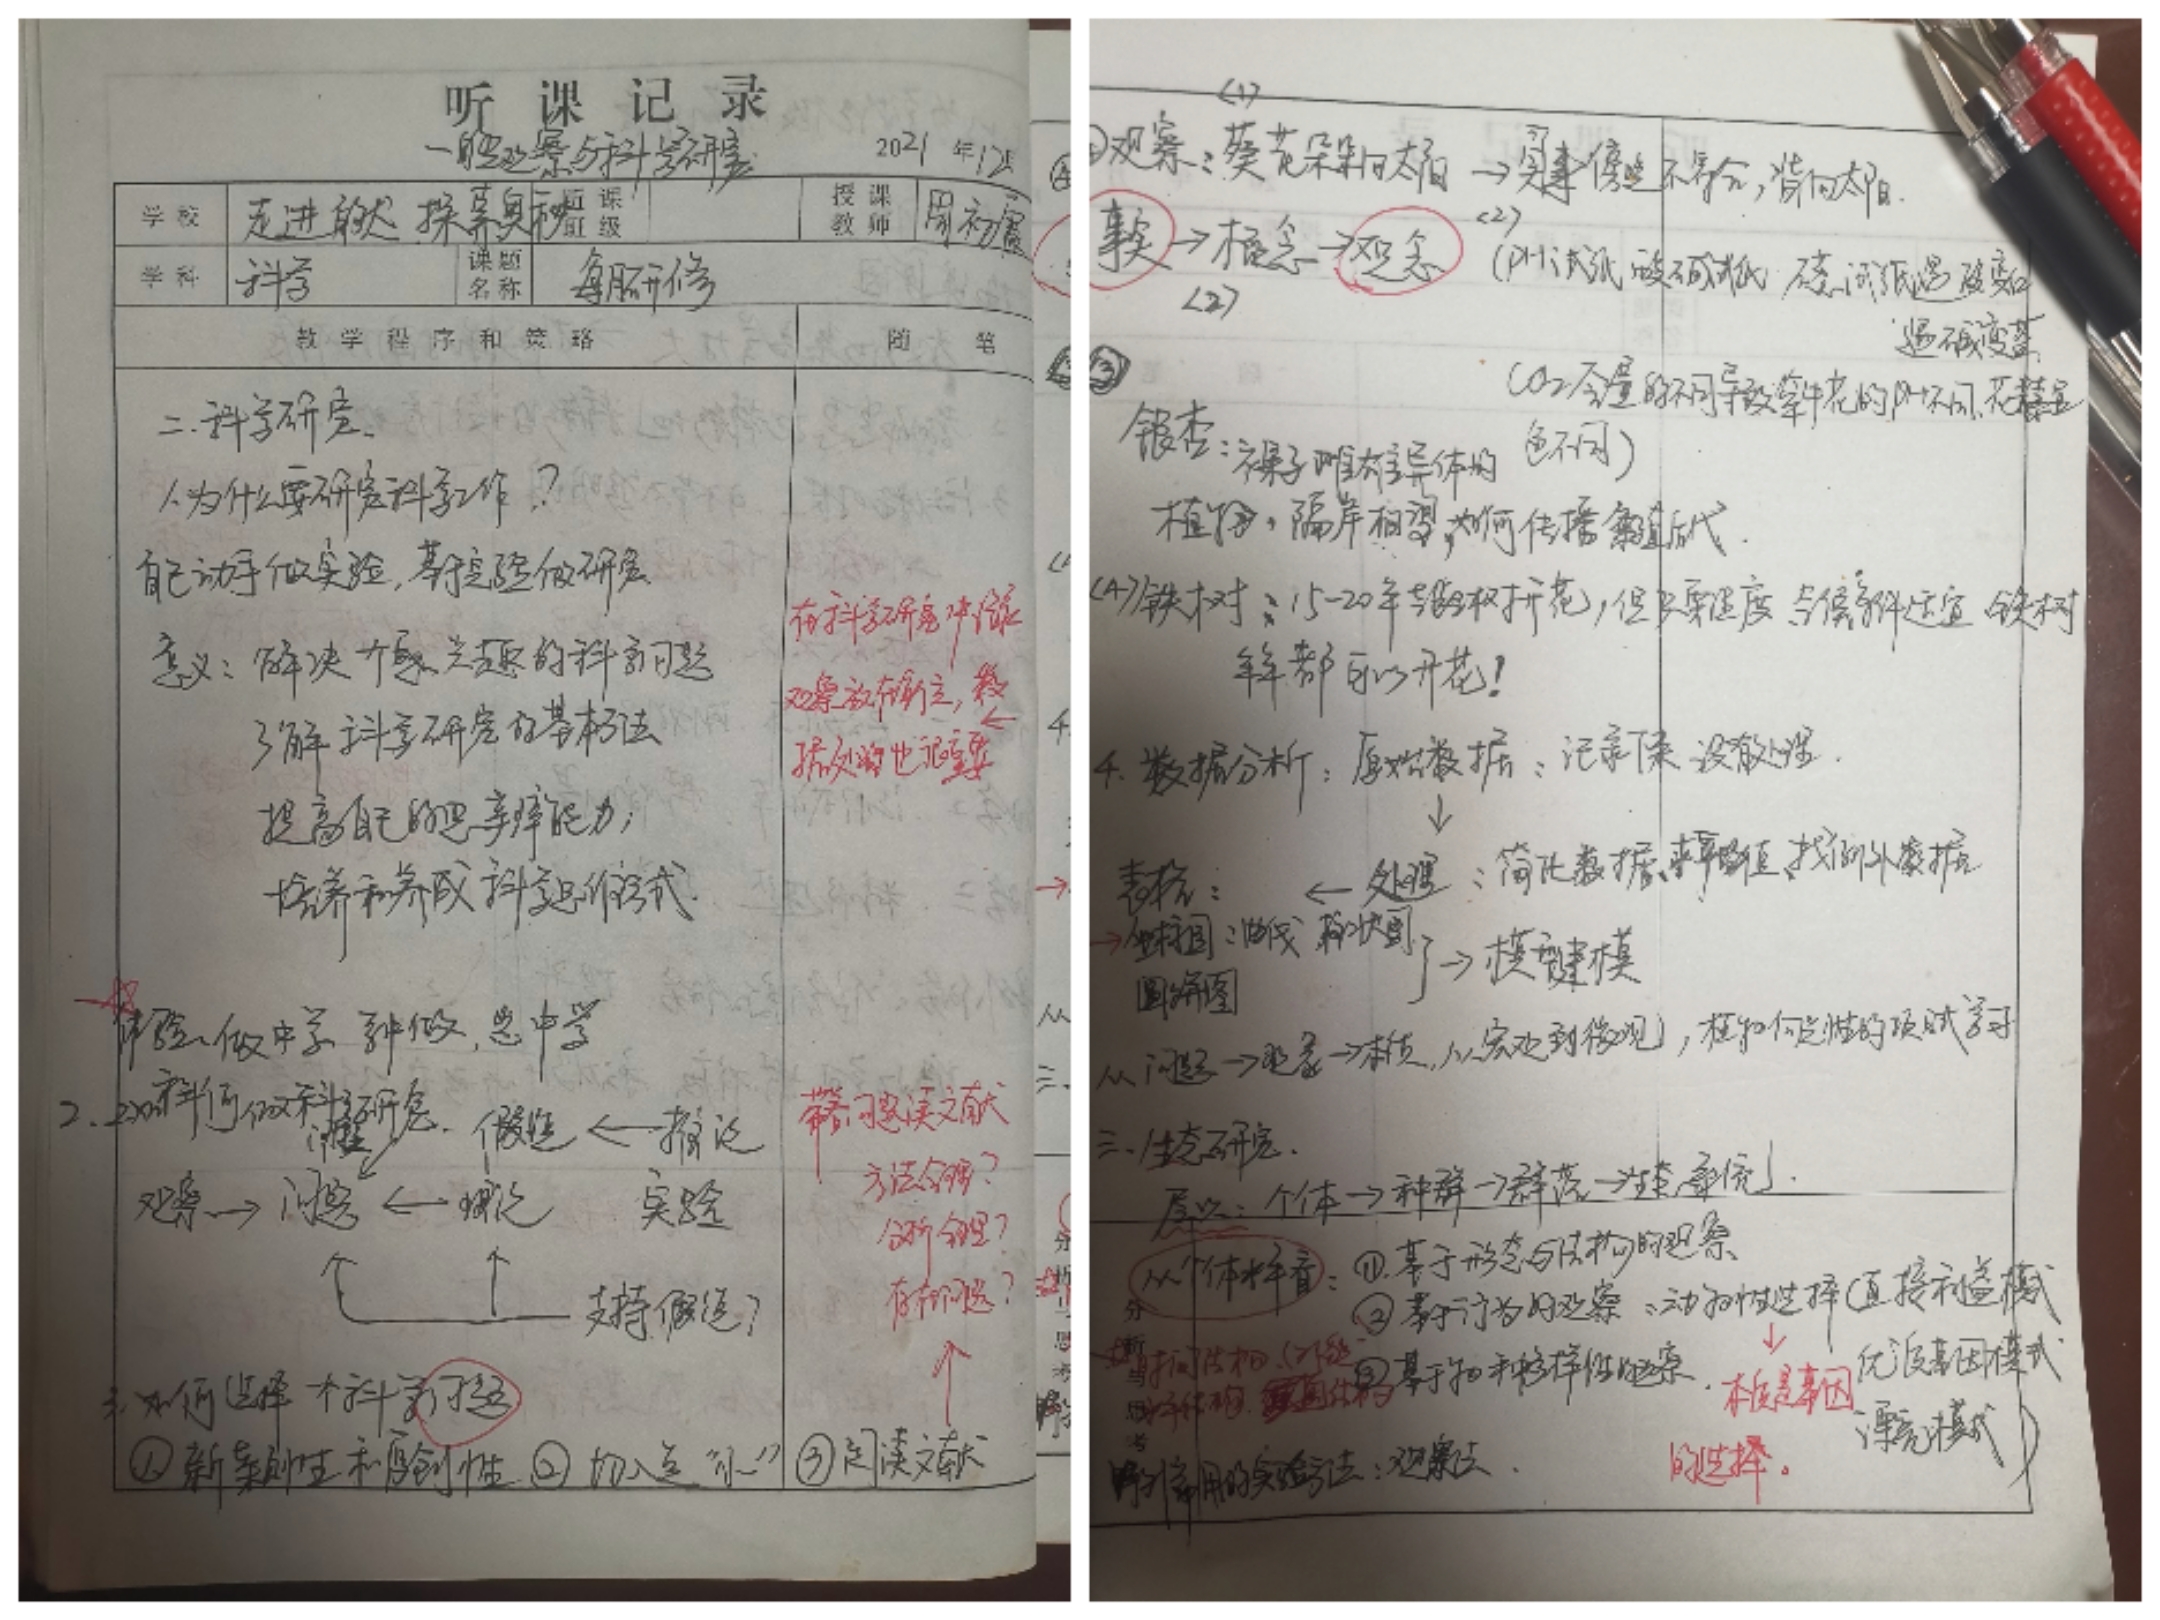 听课记录
一自然观察与科学研究
2021年12月
学校 走进自然 探索奥秘 听课班级 授课教师 周初霞
学科 科学 课题名称 每月研修
教学程序和策略 随笔
二.科学研究.
1.为什么要研究科学工作?
自己动手做实验,基于实验做研究
意义:解决 兴趣的科学问题
了解科学研究的基本方法
提高自己的思辨能力;
培养和养成科学思维模式.
在科学研究中
观察放在前之,数
据处理也很重要
体验:做中学 学中做,思中学
2.如何做科学研究.
假设←推论
观察→问题← 实验
支持假设?
带着问题读文献
方法合理?
分析合理?
存在问题?
3.如何选择个科学问题
①新颖性和原创性 ②切入点“小” ③阅读文献
(1)
观察:葵花朵朵向太阳→实事 不符合,背向太阳.
事实→概念→观念
(2)
(2)
(PH试纸 酸碱试纸 试纸遇酸变红
遇碱变蓝
CO2含量的不同导致牵牛花的PH不同,花
色不同)
③
银杏:裸子雌雄异体的
植物,隔岸相望,如何传播繁殖后代.
(4)铁树:15-20年 开花,但只要温度 条件适宜 铁树
年年都可以开花!
4.数据分析:原始数据:记录下来 没有处理.
↓
表格: ←处理:简化数据,求平均值,找例外数据
→ 坐标图:曲线 柱状图
圆饼图 →模型建模
从问题→现象→本质,从宏观到微观,
三.生态研究.
层次:个体→种群→群落→生态系统.
从个体 : ①.基于形态与结构的观察
②基于行为的观察:动物性选择(直接利益模式
③基于物种多样性的观察. 优良基因模式
本质是基因
的选择。
漂亮模式)
分析与思考
野外常用的实验方法:观察法.